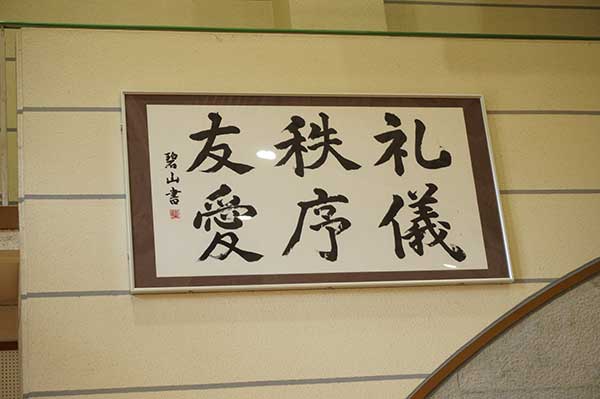 礼儀
秩序
友愛
碧山書